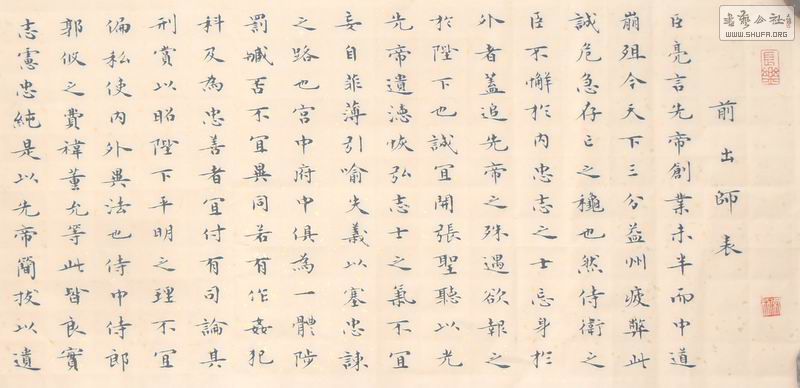 书艺公社
WWW.SHUFA.ORG
長樂
前出師表
臣亮言先帝創業未半而中道
崩殂今天下三分益州疲弊此
誠危急存亡之穐也然侍衛之
臣不懈於內忠志之士忘身於
外者蓋追先帝之殊遇欲報之
於陛下也誠宜開張聖聽以光
先帝遺德恢弘志士之氣不宜
妄自菲薄引喻失義以塞忠諫
之路也宮中府中俱為一體陟
罰臧否不宜異同若有作姦犯
科及為忠善者宜付有司論其
刑賞以昭陛下平明之理不宜
偏私使內外異法也侍中侍郎
郭攸之費禕董允等此皆良實
志慮忠純是以先帝簡拔以遺